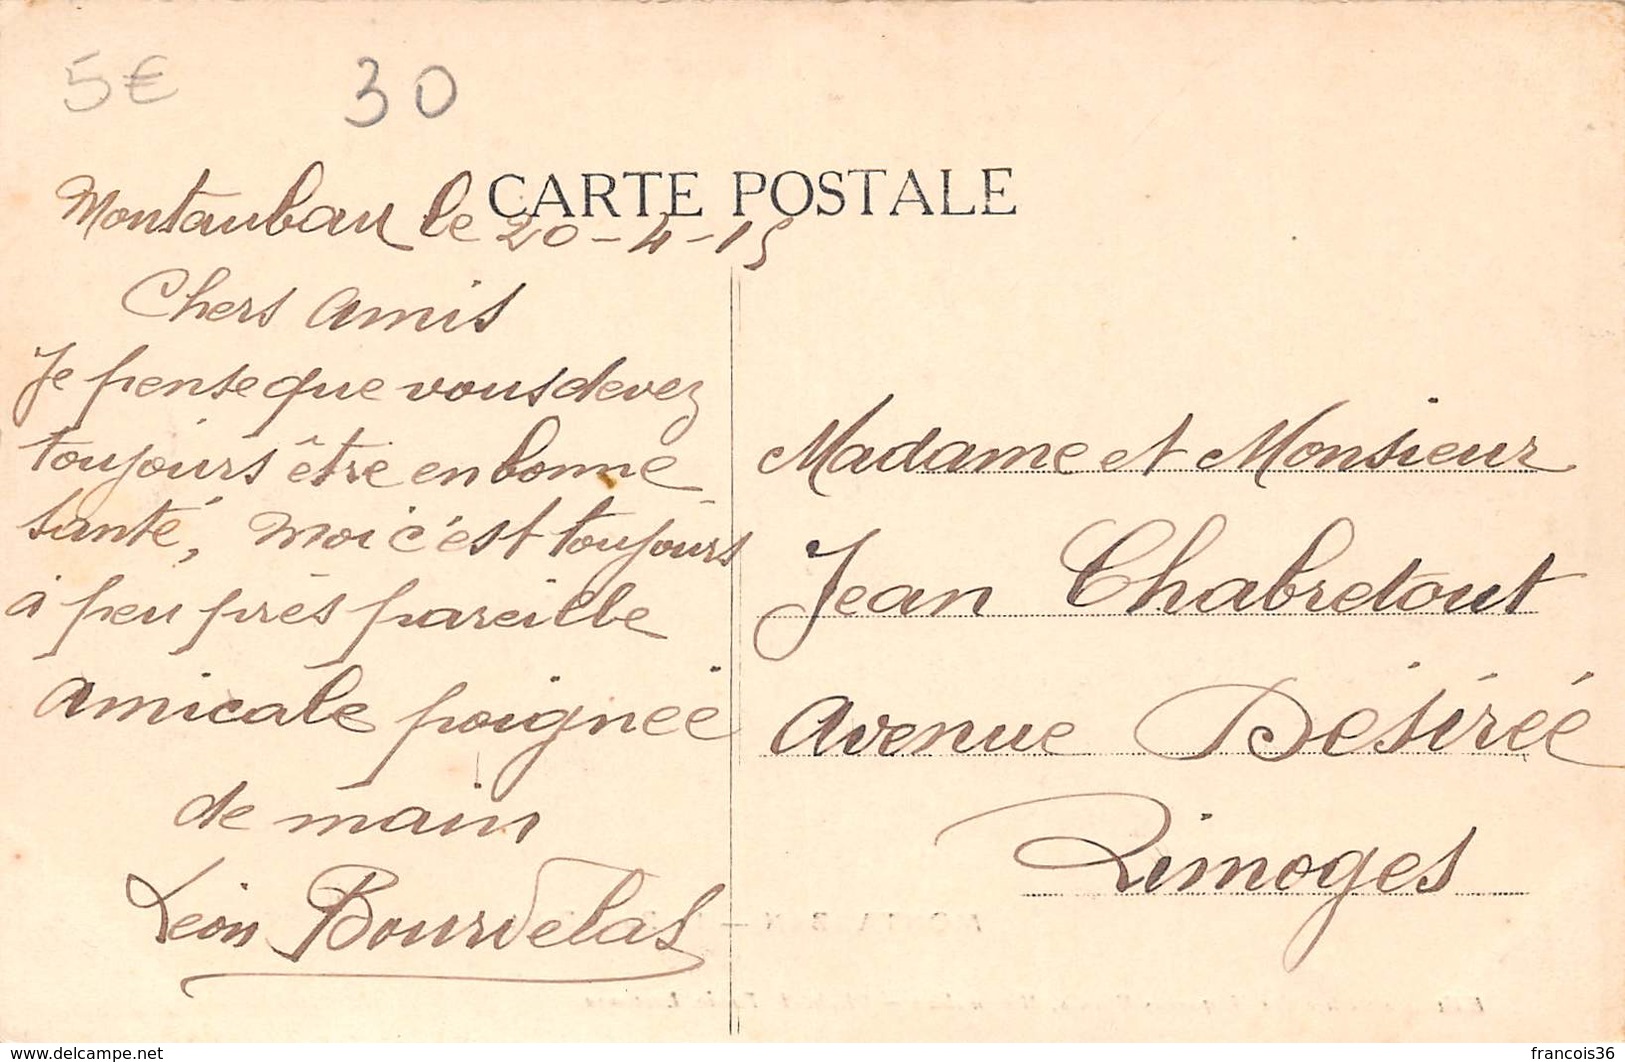 5€ 30
CARTE POSTALE
Montauban le 20-4-15
Chers Amis
Je pense que vous devez
toujours être en bonne
santé, Moi c'est toujours
à peu près pareille
Amicale poignée
de main
Léon Bourdelas
Madame et Monsieur
Jean Chabretout
Avenue Désirée
Limoges
www.delcampe.net
francois36